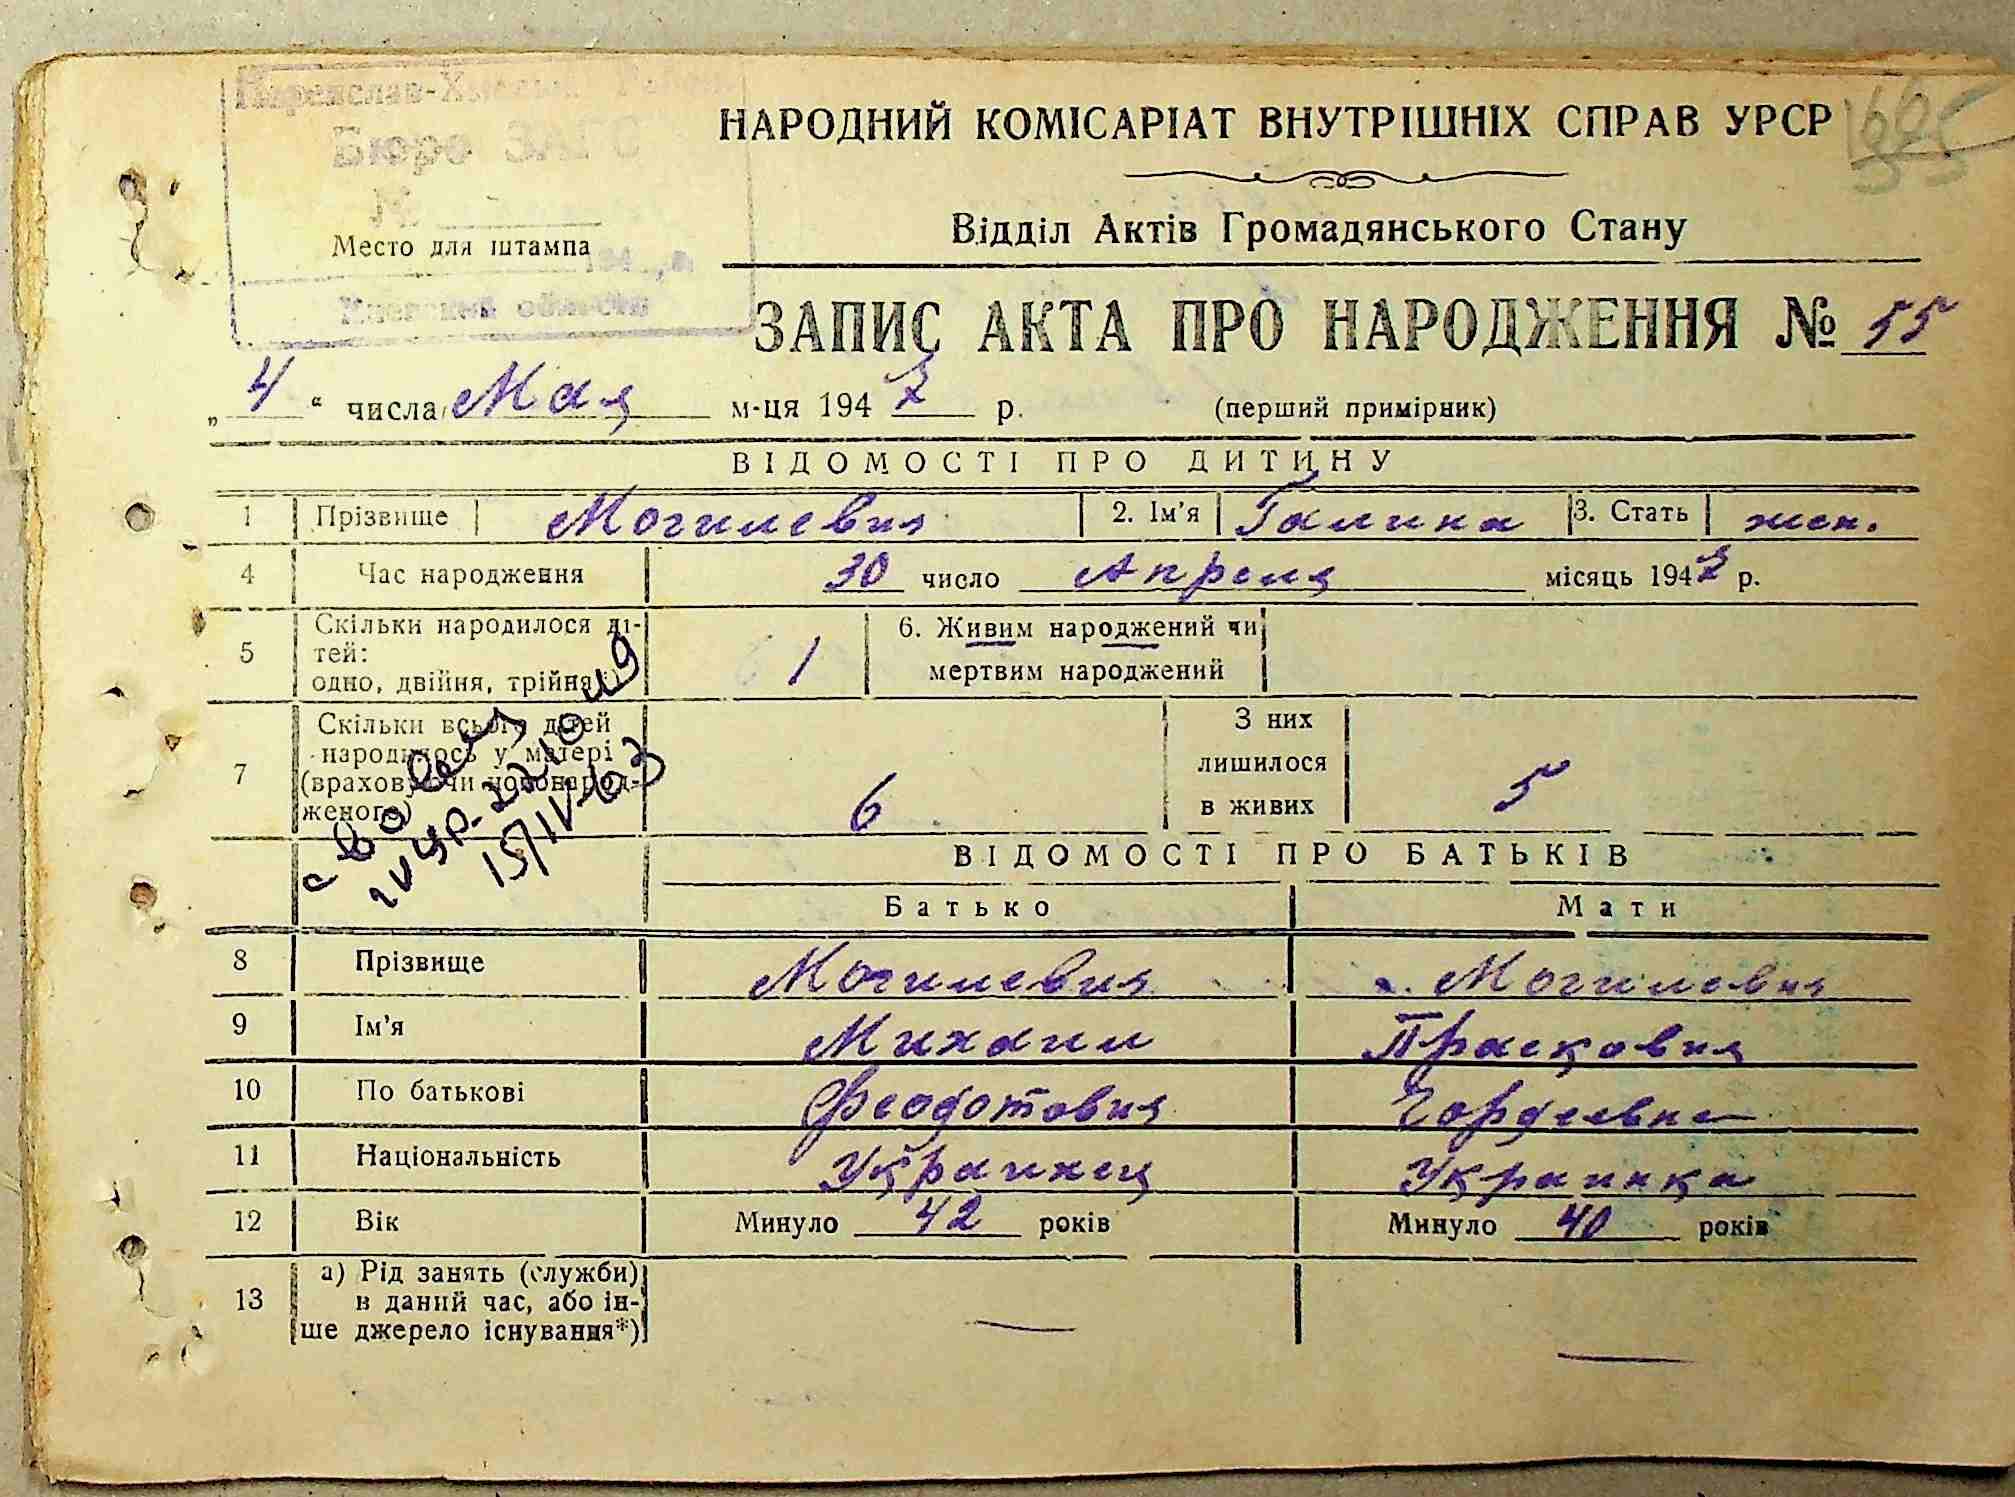 Бюро ЗАГС
№
Место для штампа
НАРОДНИЙ КОМІСАРІАТ ВНУТРІШНІХ СПРАВ УРСР
Відділ Актів Громадянського Стану
ЗАПИС АКТА ПРО НАРОДЖЕННЯ № 55
„ 4 “ числа Мая м-ця 194 р. (перший примірник)
ВІДОМОСТІ ПРО ДИТИНУ
1 Прізвище Могилевия 2. Ім'я Галина 3. Стать жен.
4 Час народження 30 число Апреля місяць 194 р.
5 Скільки народилося ді-
тей:
одно, двійня, трійня 1
6. Живим народжений чи
мертвим народжений
7 Скільки всього дітей
народилось у матері
(враховуючи новонарод-
женого) 6
З них
лишилося
в живих 5
15/IV-63
ВІДОМОСТІ ПРО БАТЬКІВ
Батько Мати
8 Прізвище Могилевия Могилевия
9 Ім'я Михаил Прасковия
10 По батькові Феодотовия Гордеевна
11 Національність Украинец Украинка
12 Вік Минуло 42 років Минуло 40 років
13 а) Рід занять (служби)
в даний час, або ін-
ше джерело існування*)